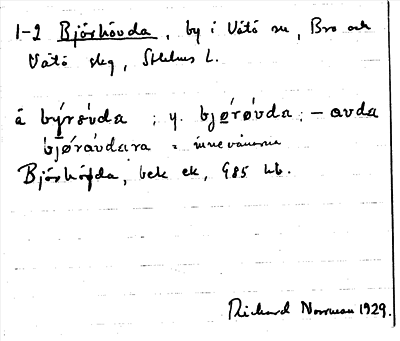 1-2 Björhövda, by i Vätö sn, Bro och
Vätö skg, Sthlms l.
å by̌rø̀vda ; y. bjø̀røvda; – avda
bjø̀ràvdara = innevånarna
Björhöfda, bek ek, G85 hb.
Richard Norrman 1929.